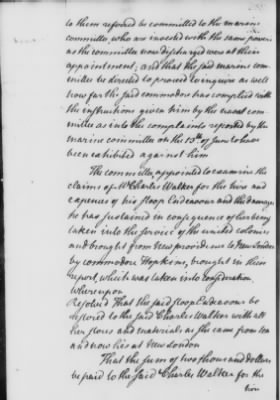 to them referred be committed to the marine
committee, who are invested with the same powers
as the committee now discharged were at their
appointment, and that the said marine com-
mittee be directed to proceed to inquire as well
how far the said commodore has complied with
the instructions given him by the naval com-
mittee as into the complaints reported by the
marine committee on the 13th of June to have
been exhibited against him
The committee appointed to examine the
claims of Mr Charles Walker for the hire and
expences of his sloop Endeavour and the damages
he has sustained in consequence of her being
taken into the service of the united colonies
and brought from New providence to New London
by commodore Hopkins, brought in their
report, which was taken into consideration
Whereupon
Resolved That the said sloop Endeavour be
restored to the said Charles Walker with all
her stores and materials as she came from sea
and now lies at New London
That the sum of two thousand dollars
be paid to the said Charles Walker for the
hire